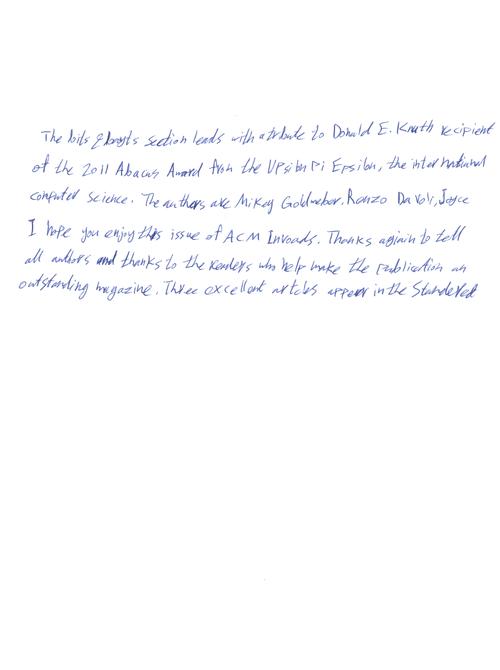 The bits & bayts section leads with a tribute to Donald E. Knuth recipient
of the 2011 Abacus Award from the Upsilon Pi Epsilon, the international
computer science. The authers are Mikey Goldweber. Renzo Davoli, Joyce
I hope you enjoy this issue of ACM Invoads. Thanks again to tell
all authors and thanks to the readers who help make the publication an
outstanding magazine. Three excellent artcles apperr in the Standered